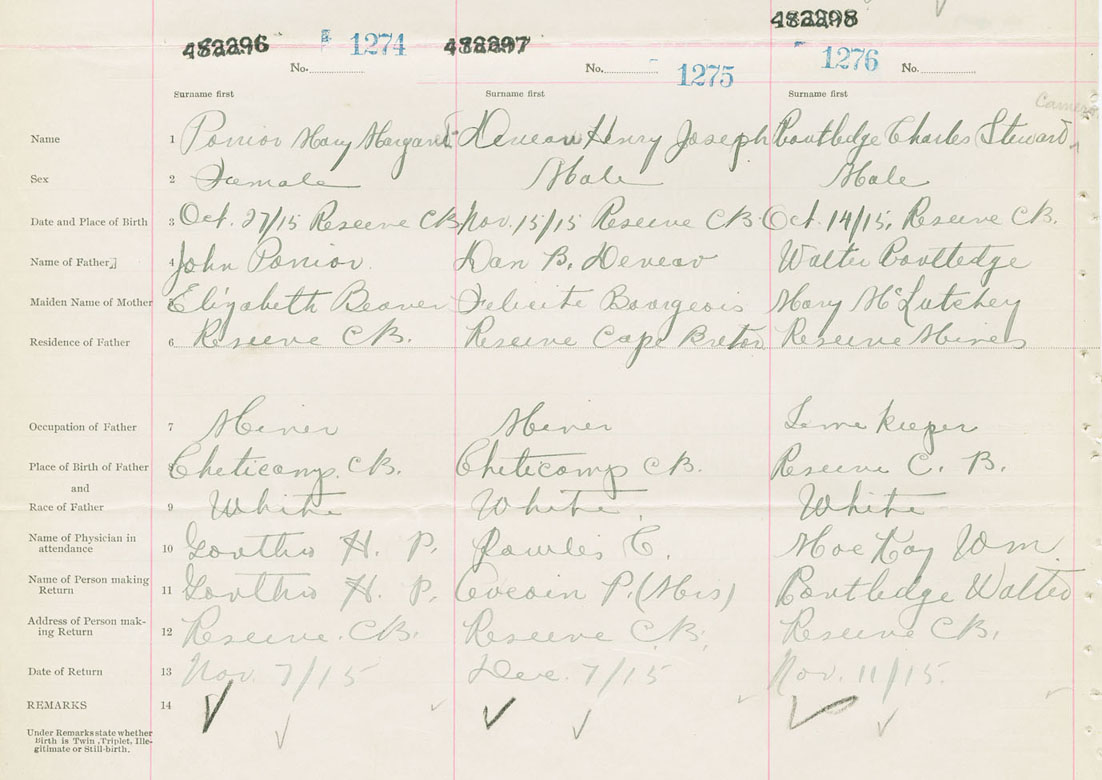 482296 1274 482297 482298
No. No. 1275 1276 No.
Surname first Surname first Surname first
Name 1 Mary Margaret Deveau Henry Joseph Routledge Charles Steward
Sex 2 Female Male Male
Date and Place of Birth 3 Oct. 27/15 Reserve CB Nov. 15/15 Reserve CB Oct. 14/15, Reserve CB.
Name of Father 4 John Dan B. Deveau Walter Routledge
Maiden Name of Mother 5 Elizabeth Beaver Felicite Bourgeois Mary McLatchey
Residence of Father 6 Reserve CB. Reserve Cape Breton Reserve Mines
Occupation of Father 7 Miner Miner Time keeper
Place of Birth of Father 8 Cheticamp. CB. Cheticamp CB. Reserve C. B.
and
Race of Father 9 White White White
Name of Physician in
attendance 10 H. P. C. MacKay Wm.
Name of Person making
Return 11 H. P. P. (Mrs) Routledge Walter
Address of Person mak-
ing Return 12 Reserve. CB. Reserve CB. Reserve CB.
Date of Return 13 Nov. 7/15 Dec. 7/15 Nov. 11/15.
REMARKS 14
Under Remarks state whether
Birth is Twin, Triplet, Ille-
gitimate or Still-birth.